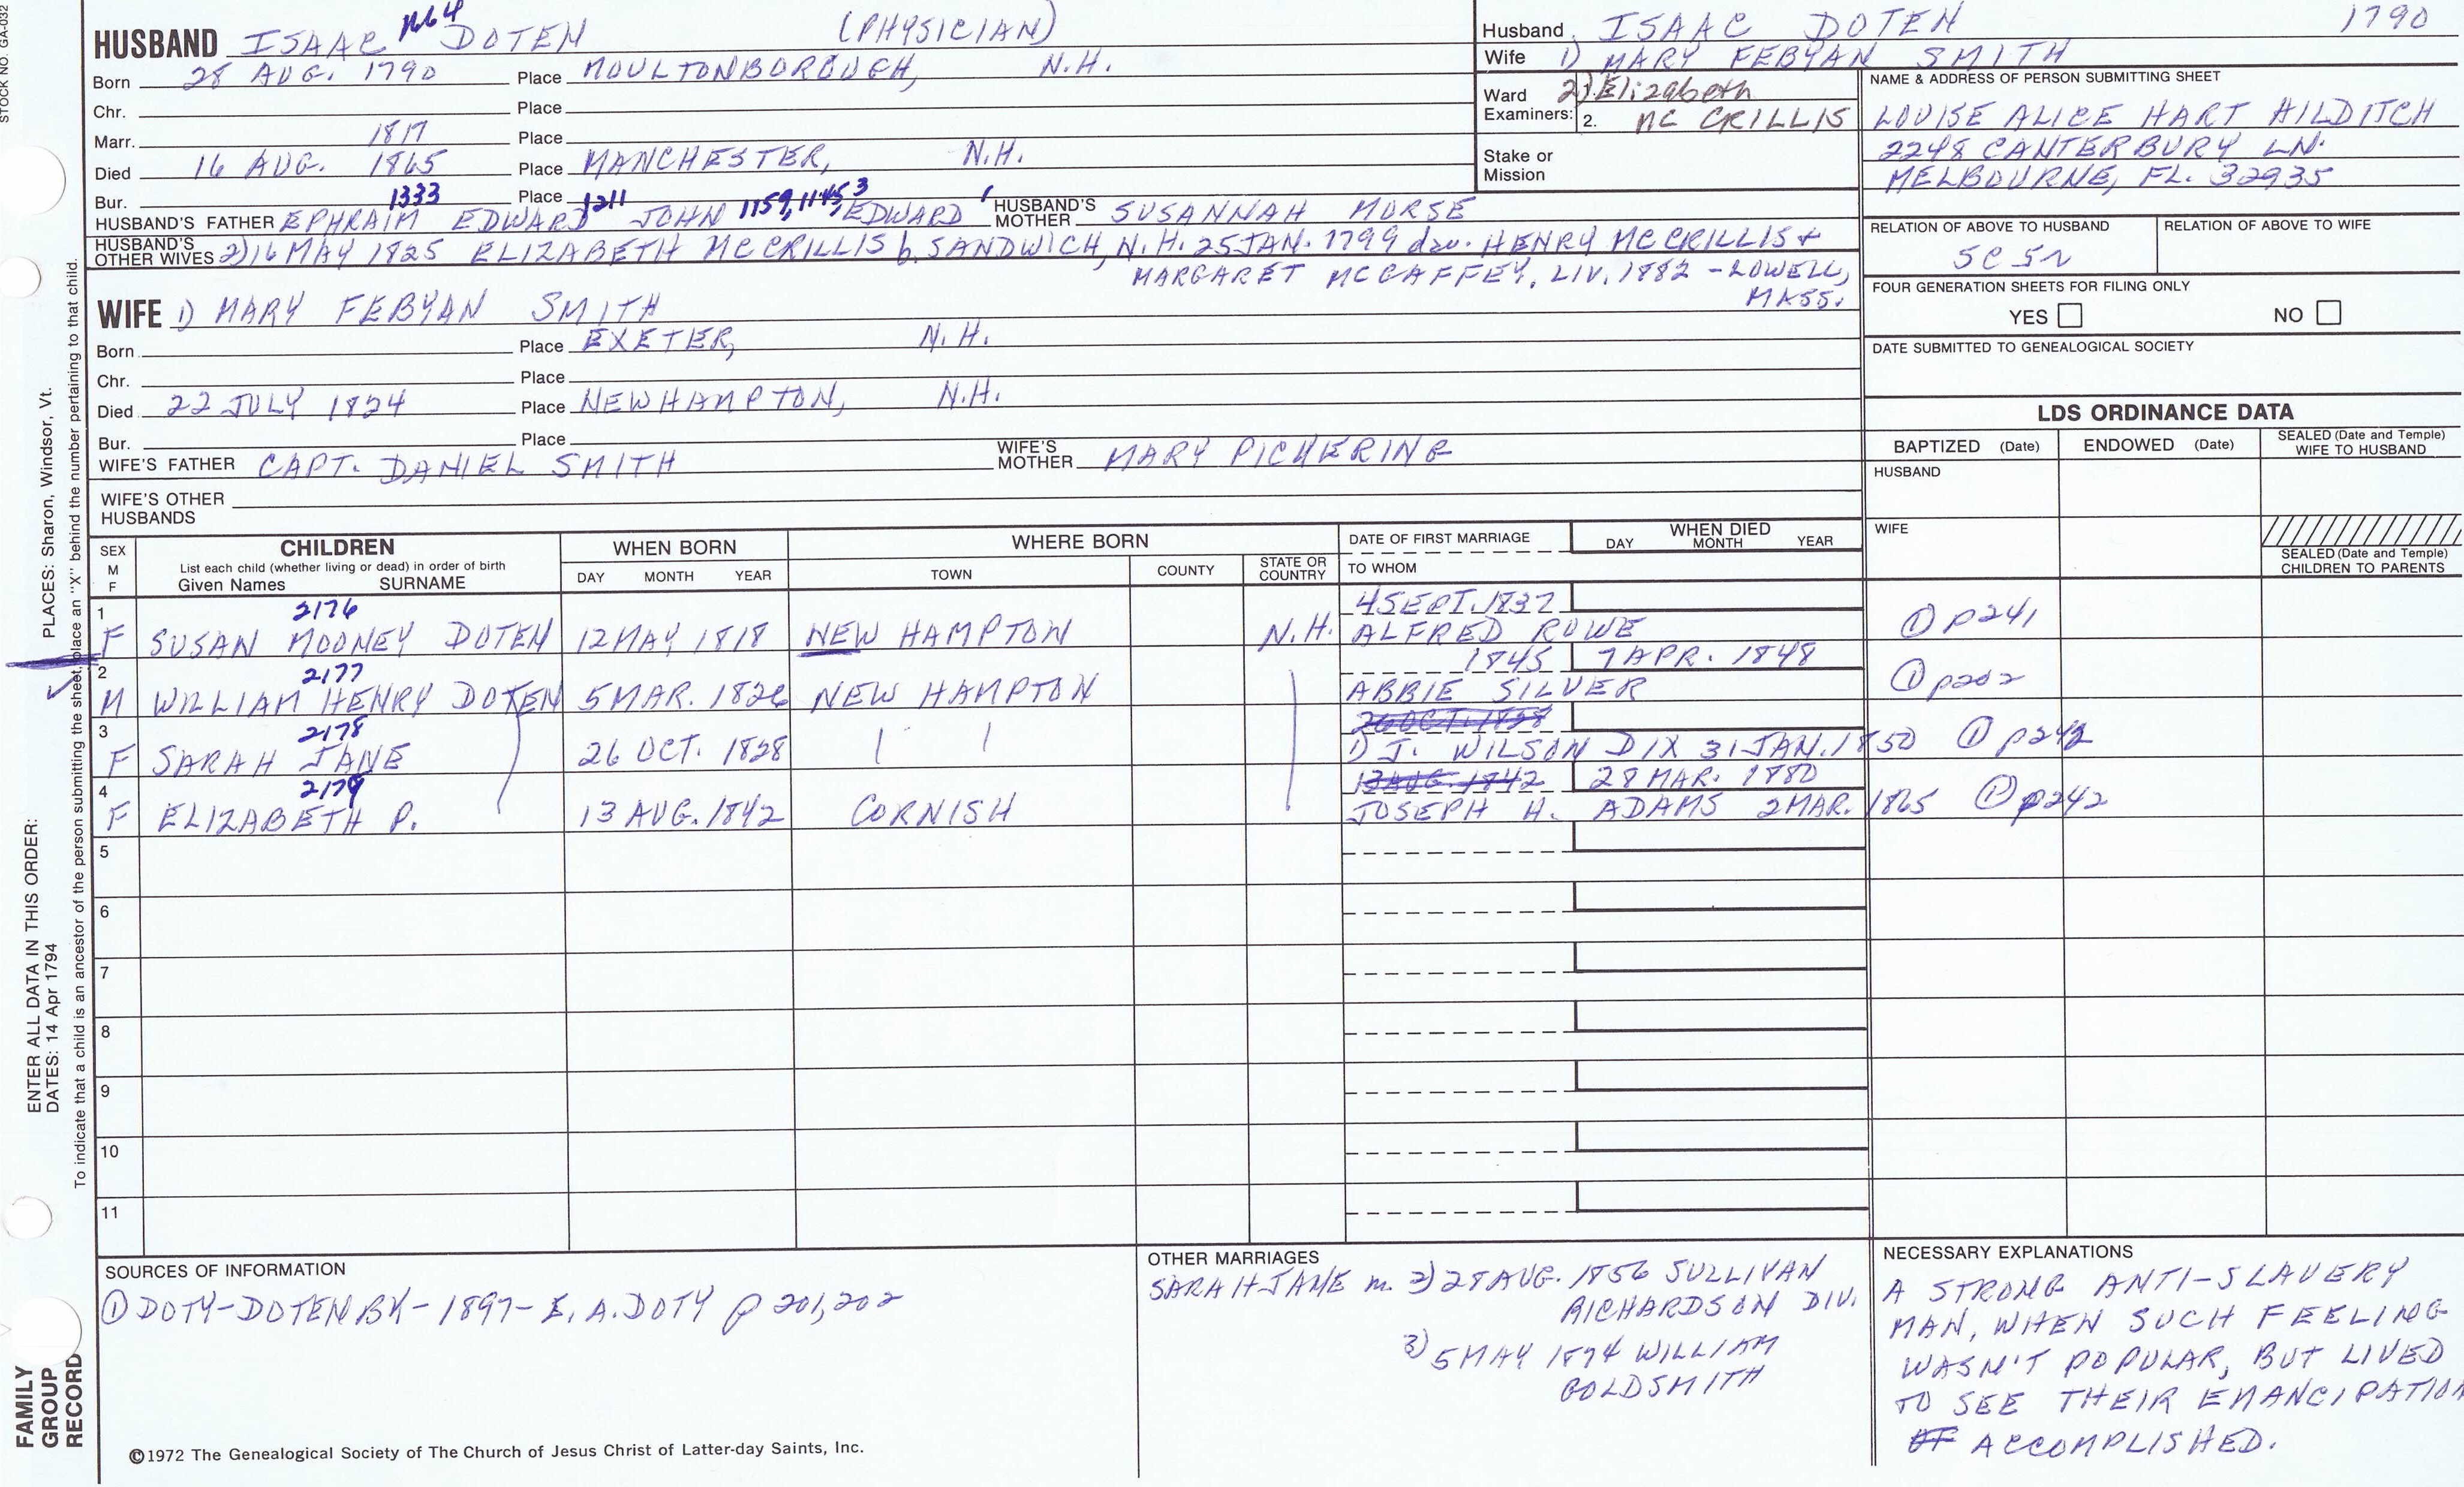 STOCK NO. GA-032
HUSBAND ISAAC DOTEN (PHYSICIAN)
Born 28 AUG. 1790 Place MOULTONBOROUGH, N.H.
Chr. Place
Marr. 1817 Place
Died 16 AUG. 1865 Place MANCHESTER, N.H.
Bur. Place
1333 1211 1159, 1145, 3
HUSBAND'S FATHER EPHRAIM EDWARD JOHN EDWARD HUSBAND'S MOTHER SUSANNAH MORSE
HUSBAND'S OTHER WIVES 2) 16 MAY 1825 ELIZABETH MCCRILLIS b. SANDWICH, N.H. 25 JAN. 1799 dau. HENRY MCCRILLIS +
MARGARET MCCAFFEY, LIV. 1882 - LOWELL,
MASS.
WIFE 1) MARY FEBYAN SMITH
Born Place EXETER, N.H.
Chr. Place
Died 22 JULY 1824 Place NEWHAMPTON, N.H.
Bur. Place
WIFE'S FATHER CAPT. DANIEL SMITH WIFE'S MOTHER MARY PICKERING
WIFE'S OTHER HUSBANDS
Husband ISAAC DOTEN 1790
Wife 1) MARY FEBYAN SMITH
Ward Examiners: 2) Elizabeth
2. MC CRILLIS
Stake or Mission
NAME & ADDRESS OF PERSON SUBMITTING SHEET
LOUISE ALICE HART HILDITCH
2248 CANTERBURY LN.
MELBOURNE, FL. 32935
RELATION OF ABOVE TO HUSBAND RELATION OF ABOVE TO WIFE
FOUR GENERATION SHEETS FOR FILING ONLY
YES NO
DATE SUBMITTED TO GENEALOGICAL SOCIETY
LDS ORDINANCE DATA
BAPTIZED (Date) ENDOWED (Date) SEALED (Date and Temple) WIFE TO HUSBAND
HUSBAND
WIFE
SEALED (Date and Temple) CHILDREN TO PARENTS
SEX M F
CHILDREN
List each child (whether living or dead) in order of birth
Given Names SURNAME
WHEN BORN
DAY MONTH YEAR
WHERE BORN
TOWN COUNTY STATE OR COUNTRY
DATE OF FIRST MARRIAGE
TO WHOM
WHEN DIED
DAY MONTH YEAR
1 2176 4 SEPT. 1837
F SUSAN MOONEY DOTEN 12 MAY 1818 NEW HAMPTON N.H. ALFRED ROWE ① p241
2 2177 1845 7 APR. 1848
M WILLIAM HENRY DOTEN 5 MAR. 1826 NEW HAMPTON ABBIE SILVER ① p202
3 2178 26 OCT. 1828
F SARAH JANE 26 OCT. 1828 1) J. WILSON DIX 31 JAN. 1850 ① p242
4 2179 13 AUG. 1842 28 MAR. 1880
F ELIZABETH P. 13 AUG. 1842 CORNISH JOSEPH H. ADAMS 2 MAR. 1865 ① p242
5
6
7
8
9
10
11
SOURCES OF INFORMATION
① DOTY-DOTEN BK - 1897 - E. A. DOTY p 201, 202
OTHER MARRIAGES
SARAH JANE m. 2) 28 AUG. 1856 SULLIVAN
RICHARDSON DIV.
3) 5 MAY 1874 WILLIAM
GOLDSMITH
NECESSARY EXPLANATIONS
A STRONG ANTI-SLAVERY
MAN, WHEN SUCH FEELING
WASN'T POPULAR, BUT LIVED
TO SEE THEIR EMANCIPATION
OF ACCOMPLISHED.
©1972 The Genealogical Society of The Church of Jesus Christ of Latter-day Saints, Inc.
FAMILY GROUP RECORD
ENTER ALL DATA IN THIS ORDER:
DATES: 14 Apr 1794
PLACES: Sharon, Windsor, Vt.
To indicate that a child is an ancestor of the person submitting the sheet, place an "X" behind the number pertaining to that child.